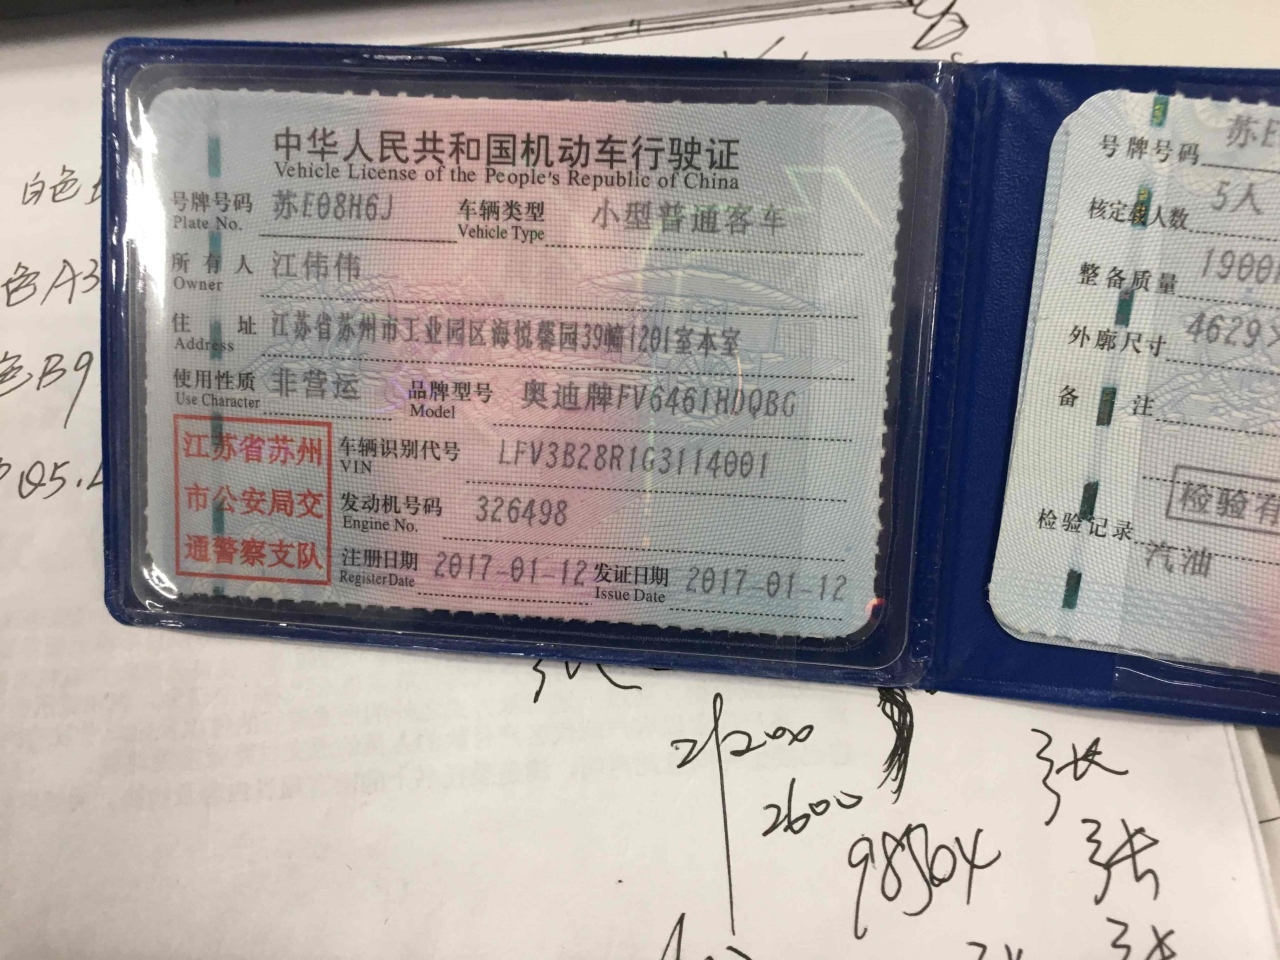 中华人民共和国机动车行驶证
Vehicle License of the People's Republic of China
号牌号码 苏E08H6J 车辆类型 小型普通客车
Plate No. Vehicle Type
所有人 江伟伟
Owner
住址 江苏省苏州市工业园区海悦馨园39幢1201室本室
Address
使用性质 非营运 品牌型号 奥迪牌FV6461HDQBG
Use Character Model
江苏省苏州
市公安局交
通警察支队
车辆识别代号 LFV3B28R1G3114001
VIN
发动机号码 326498
Engine No.
注册日期 2017-01-12 发证日期 2017-01-12
Register Date Issue Date
号牌号码 苏E
核定载人数 5人
整备质量 1900
外廓尺寸 4629×
备注
检验有
检验记录
汽油
白色
色A3
色B9
Q5.L
21200
2600
98504
张
张
张